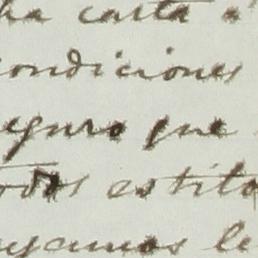 ha carta a
condiciones
eguro que
todos estilo
gamos le